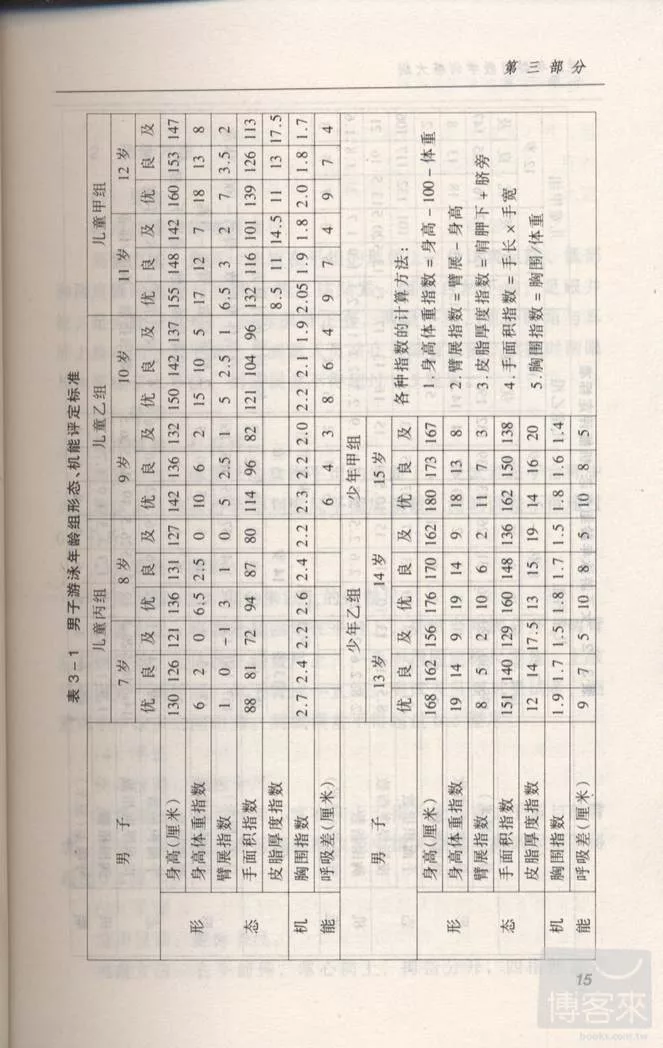 第三部分
表3-1 男子游泳年龄组形态、机能评定标准
男子 儿童丙组 儿童乙组 儿童甲组
7岁 8岁 9岁 10岁 11岁 12岁
优 良 及 优 良 及 优 良 及 优 良 及 优 良 及 优 良 及
形态 身高(厘米) 130 126 121 136 131 127 142 136 132 150 142 137 155 148 142 160 153 147
身高体重指数 6 2 0 6.5 2.5 0 10 6 2 15 10 5 17 12 7 18 13 8
臂展指数 1 0 -1 3 1 0 5 2.5 1 5 2.5 1 6.5 3 2 7 3.5 2
手面积指数 88 81 72 94 87 80 114 96 82 121 104 96 132 116 101 139 126 113
皮脂厚度指数 8.5 11 14.5 11 13 17.5
机能 胸围指数 2.7 2.4 2.2 2.6 2.4 2.2 2.3 2.2 2.0 2.2 2.1 1.9 2.05 1.9 1.8 2.0 1.8 1.7
呼吸差(厘米) 6 4 3 8 6 4 9 7 4 9 7 4
男子 少年乙组 少年甲组
13岁 14岁 15岁
优 良 及 优 良 及 优 良 及
形态 身高(厘米) 168 162 156 176 170 162 180 173 167
身高体重指数 19 14 9 19 14 9 18 13 8
臂展指数 8 5 2 10 6 2 11 7 3
手面积指数 151 140 129 160 148 136 162 150 138
皮脂厚度指数 12 14 17.5 13 15 19 14 16 20
机能 胸围指数 1.9 1.7 1.5 1.8 1.7 1.5 1.8 1.6 1.4
呼吸差(厘米) 9 7 5 10 8 5 10 8 5
各种指数的计算方法:
1.身高体重指数=身高-100-体重
2.臂展指数=臂展-身高
3.皮脂厚度指数=肩胛下+脐旁
4.手面积指数=手长×手宽
5.胸围指数=胸围/体重
15
博客來
books.com.tw